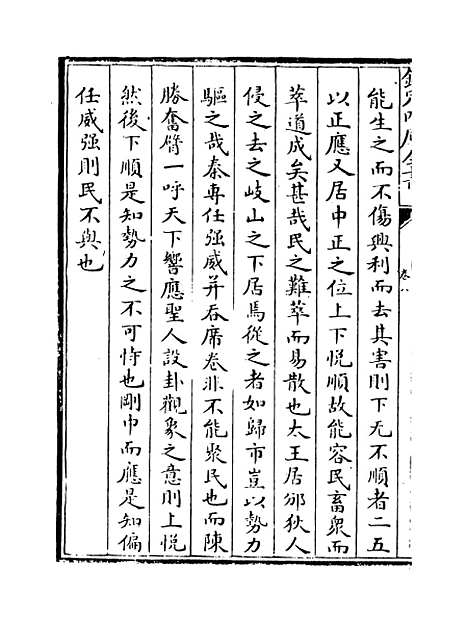 欽定四庫全書
卷八
能生之而不傷興利而去其害則下无不順者二五
以正應又居中正之位上下悅順故能容民畜衆而
萃道成矣甚哉民之難萃而易散也太王居邠狄人
侵之去之岐山之下居焉從之者如歸市豈以勢力
驅之哉秦專任强威并吞席卷非不能聚民也而陳
勝奮臂一呼天下響應聖人設卦觀象之意則上悅
然後下順是知勢力之不可恃也剛中而應是知偏
任威强則民不與也